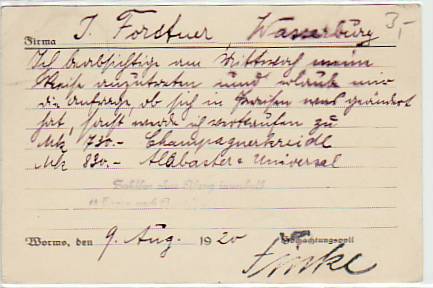 3,-
Firma J. Forstner, Wasserburg
Ich beabsichtige am Mittwoch meine
Reise anzutreten und erlaube mir
die Anfrage, ob sich in Preisen was geändert
hat, sonst werde ich verkaufen zu
Mk 730.- Champagnerkreide
Mk 830.- Alabaster = Universal
Worms, den 9. Aug. 1920 Hochachtungsvoll